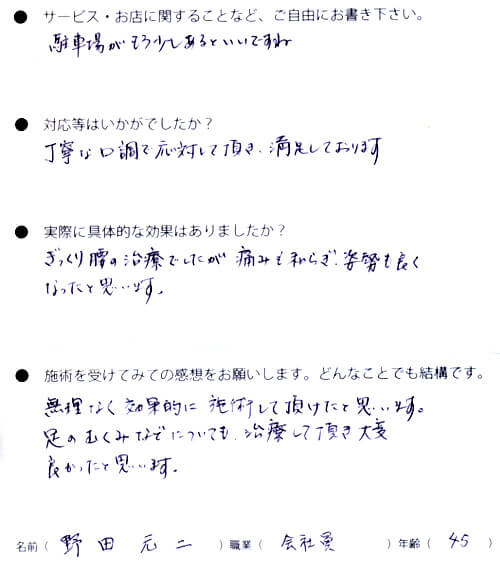 ● サービス・お店に関することなど、ご自由にお書き下さい。
駐車場がもう少しあるといいですね
● 対応等はいかがでしたか？
丁寧な口調で応対して頂き、満足しております
● 実際に具体的な効果はありましたか？
ぎっくり腰の治療でしたが 痛みも和らぎ、姿勢も良く
なったと思います。
● 施術を受けてみての感想をお願いします。どんなことでも結構です。
無理なく効果的に施術して頂けたと思います。
足のむくみなどについても、治療して頂き大変
良かったと思います。
名前（ 野田 元二 ）職業（ 会社員 ）年齢（ 45 ）